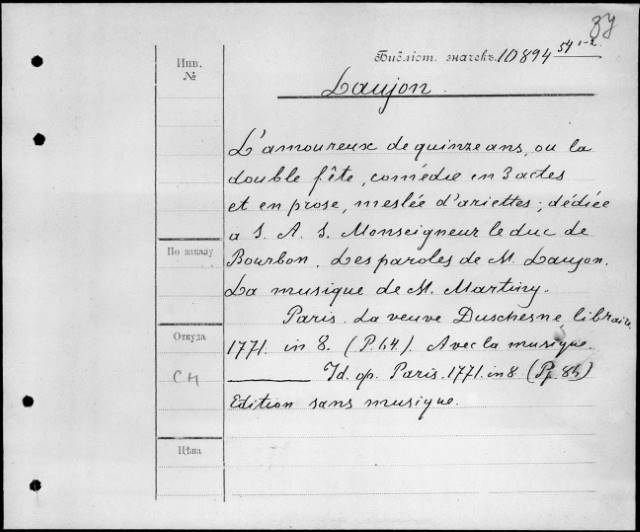 37
Библіот. значекъ. 10894 54 1-2.
Инв.
№
Laujon.
L'amoureux de quinze ans, ou la
double fête, comédie en 3 actes
et en prose, meslée d'ariettes; dédiée
a S. A. S. Monseigneur le duc de
По заказу
Bourbon. Les paroles de M. Laujon.
La musique de M. Martiny.
Paris. La veuve Duschesne, libraire
Откуда
1771. in 8. (P. 64.) Avec la musique.
СЧ
Id. op. Paris. 1771. in 8
Edition sans musique.
Цѣна